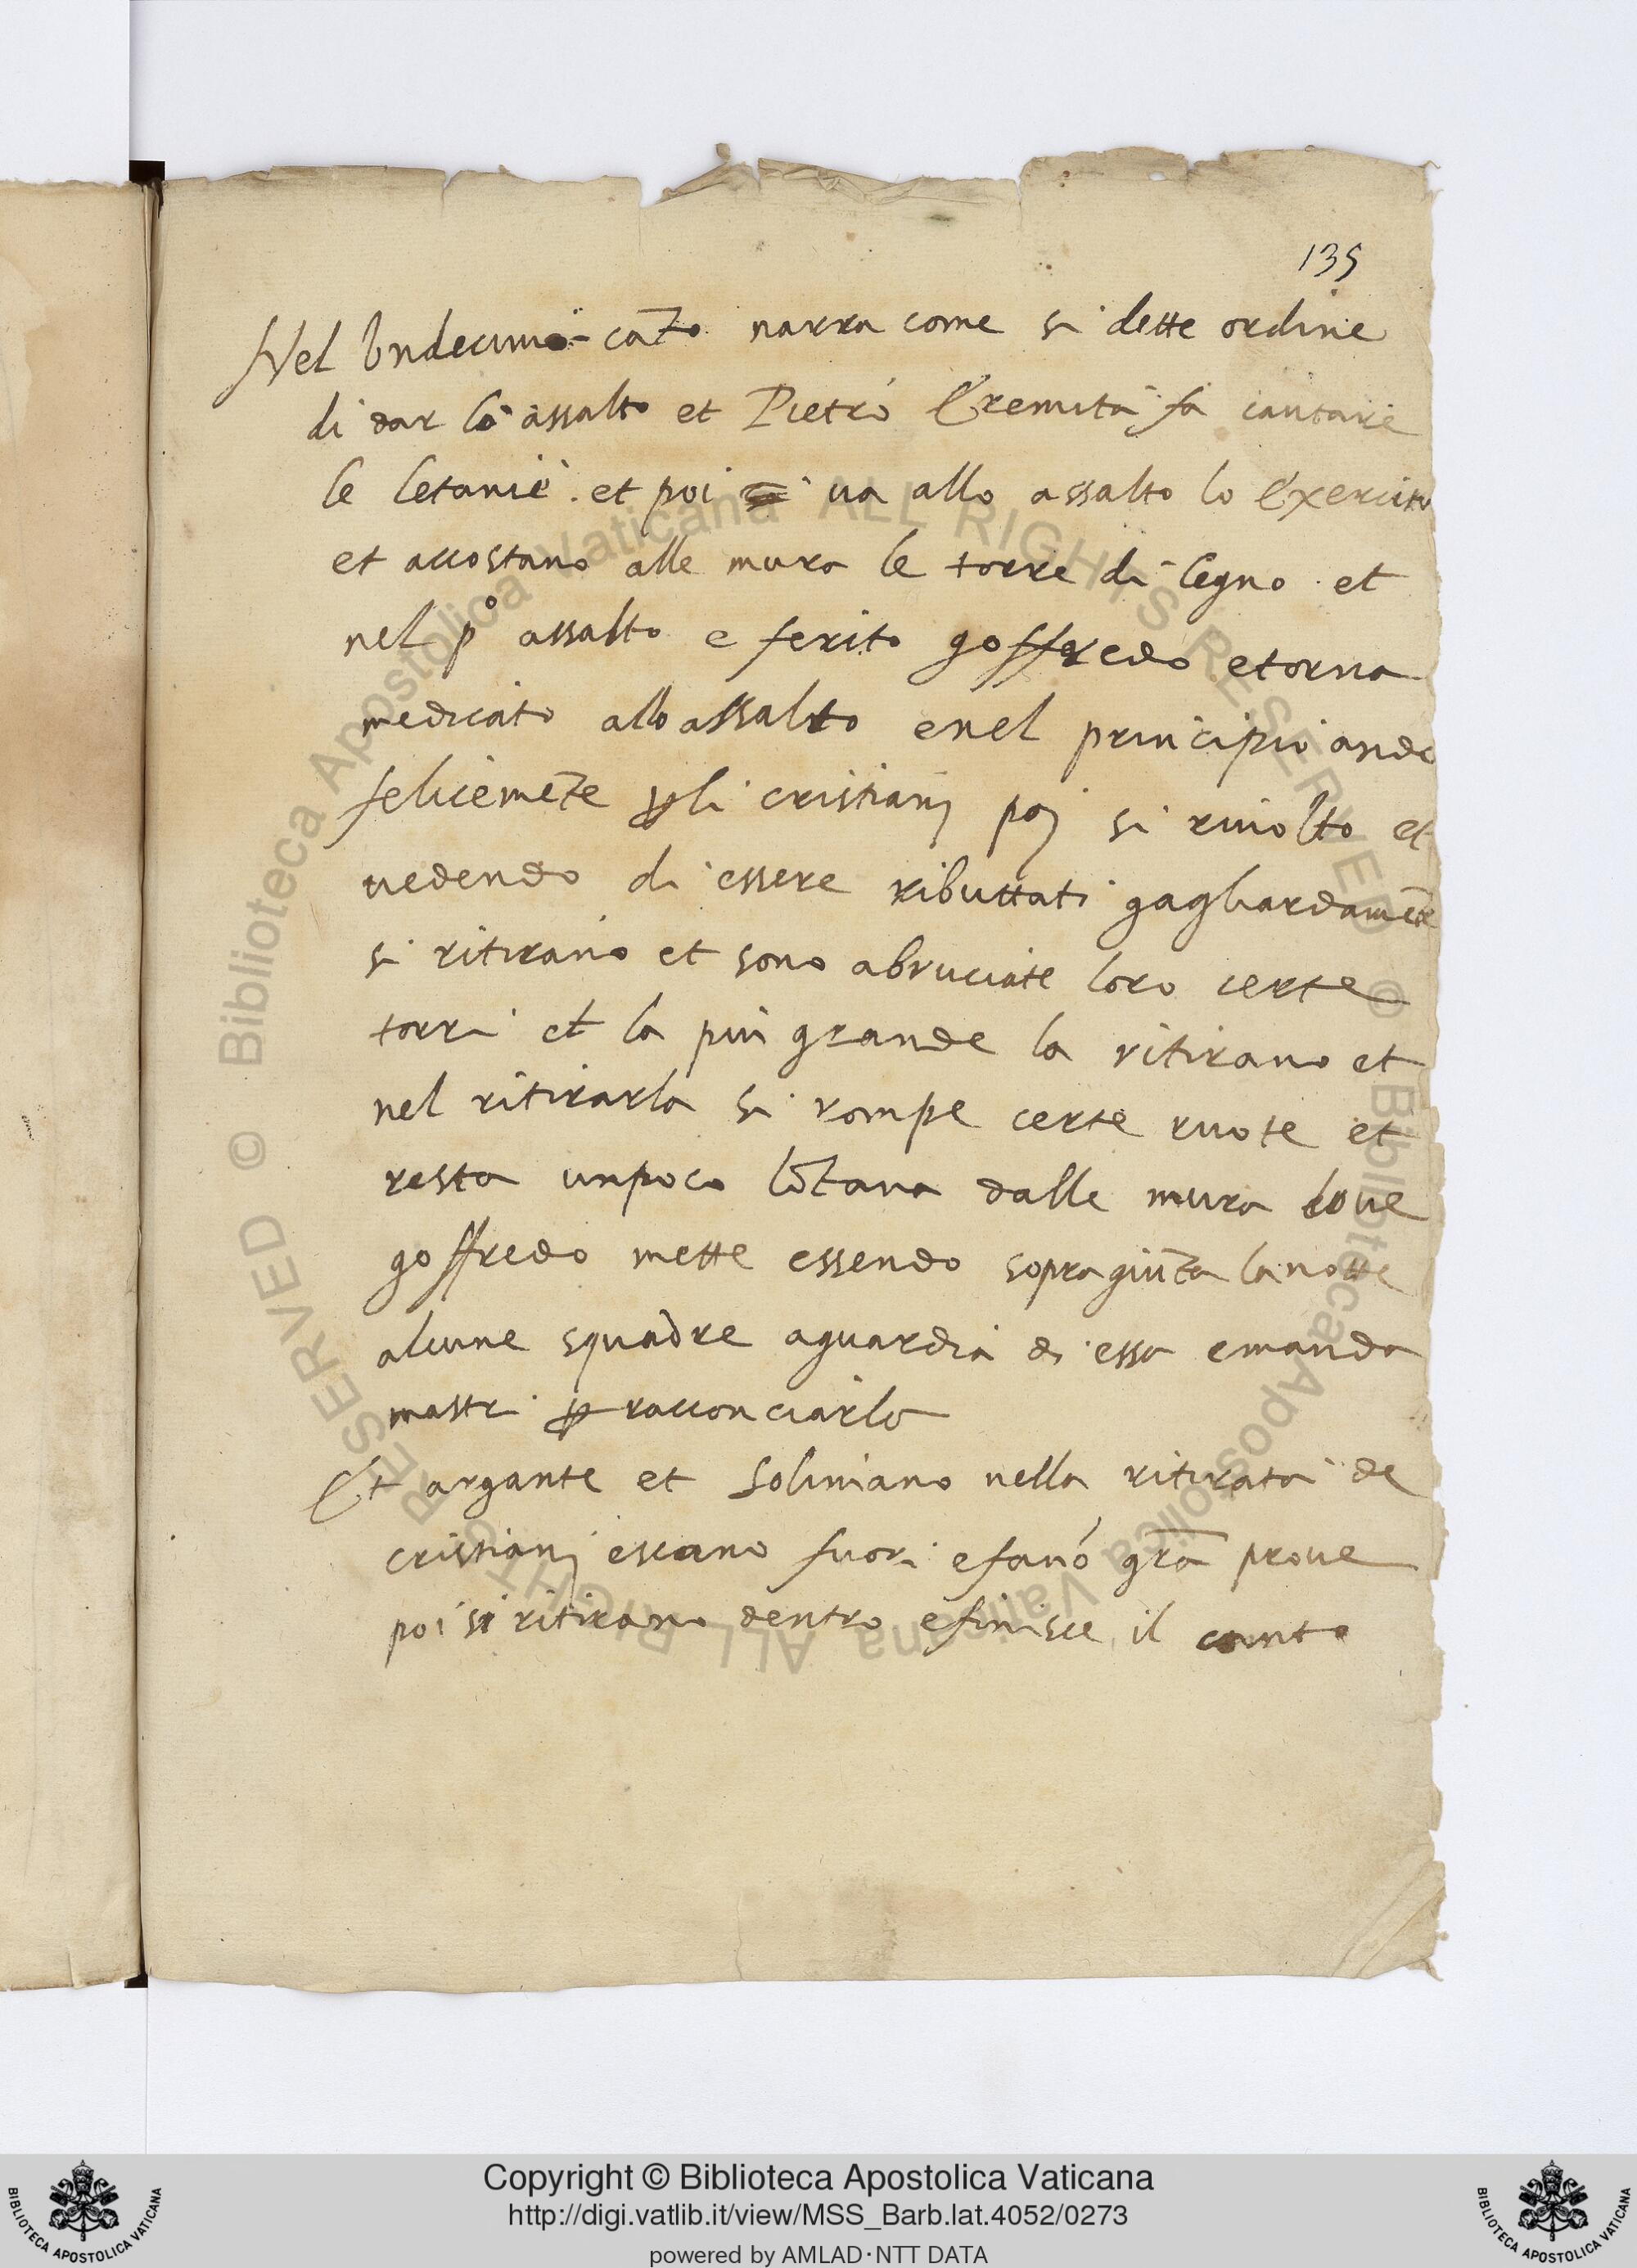 135
Nel Undecimo cãto narra come si dette ordine
di dar lo assalto et Pietro Eremita fa cantare
le letanie . et poi va allo assalto lo Exercito
et accostano alle mura le torre di legno . et
nel pº assalto e ferito goffredo etorna
medicato allo assalto enel principio ando
felicemẽte ꝑli cristianj poj si rivolto et
vedendo di essere ributtati gagliardamẽte
si ritirano et sono abruciate loro certe
torri et la piu grande la ritirano et
nel ritirarla si rompe certe ruote et
resta unpoco lõtana dalle mura dove
goffredo mette essendo sopragiũta lanotte
alcune squadre aguardia di essa emanda
mastri ꝑ racconciarla
Et argante et Solimano nella ritirata de
cristianj escano fuori efano grã prove
poi si ritirano dentro efinisce il canto
© Biblioteca Apostolica Vaticana ALL RIGHTS RESERVED © Biblioteca Apostolica Vaticana ALL RIGHTS RESERVED
BIBLIOTECA APOSTOLICA VATICANA
Copyright © Biblioteca Apostolica Vaticana
http://digi.vatlib.it/view/MSS_Barb.lat.4052/0273
powered by AMLAD·NTT DATA
BIBLIOTECA APOSTOLICA VATICANA